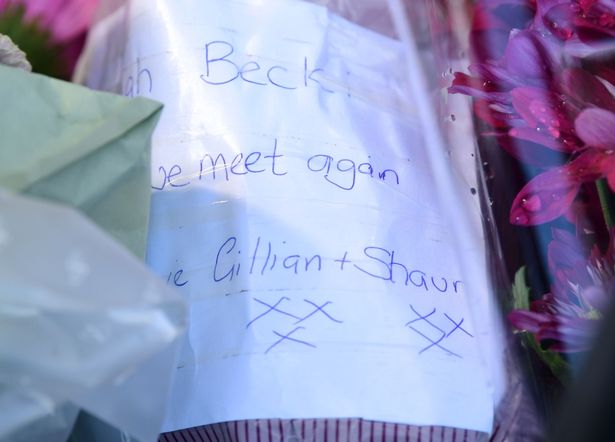 ah Beck.
we meet again
ie Gillian + Shaun
xx xx
x x